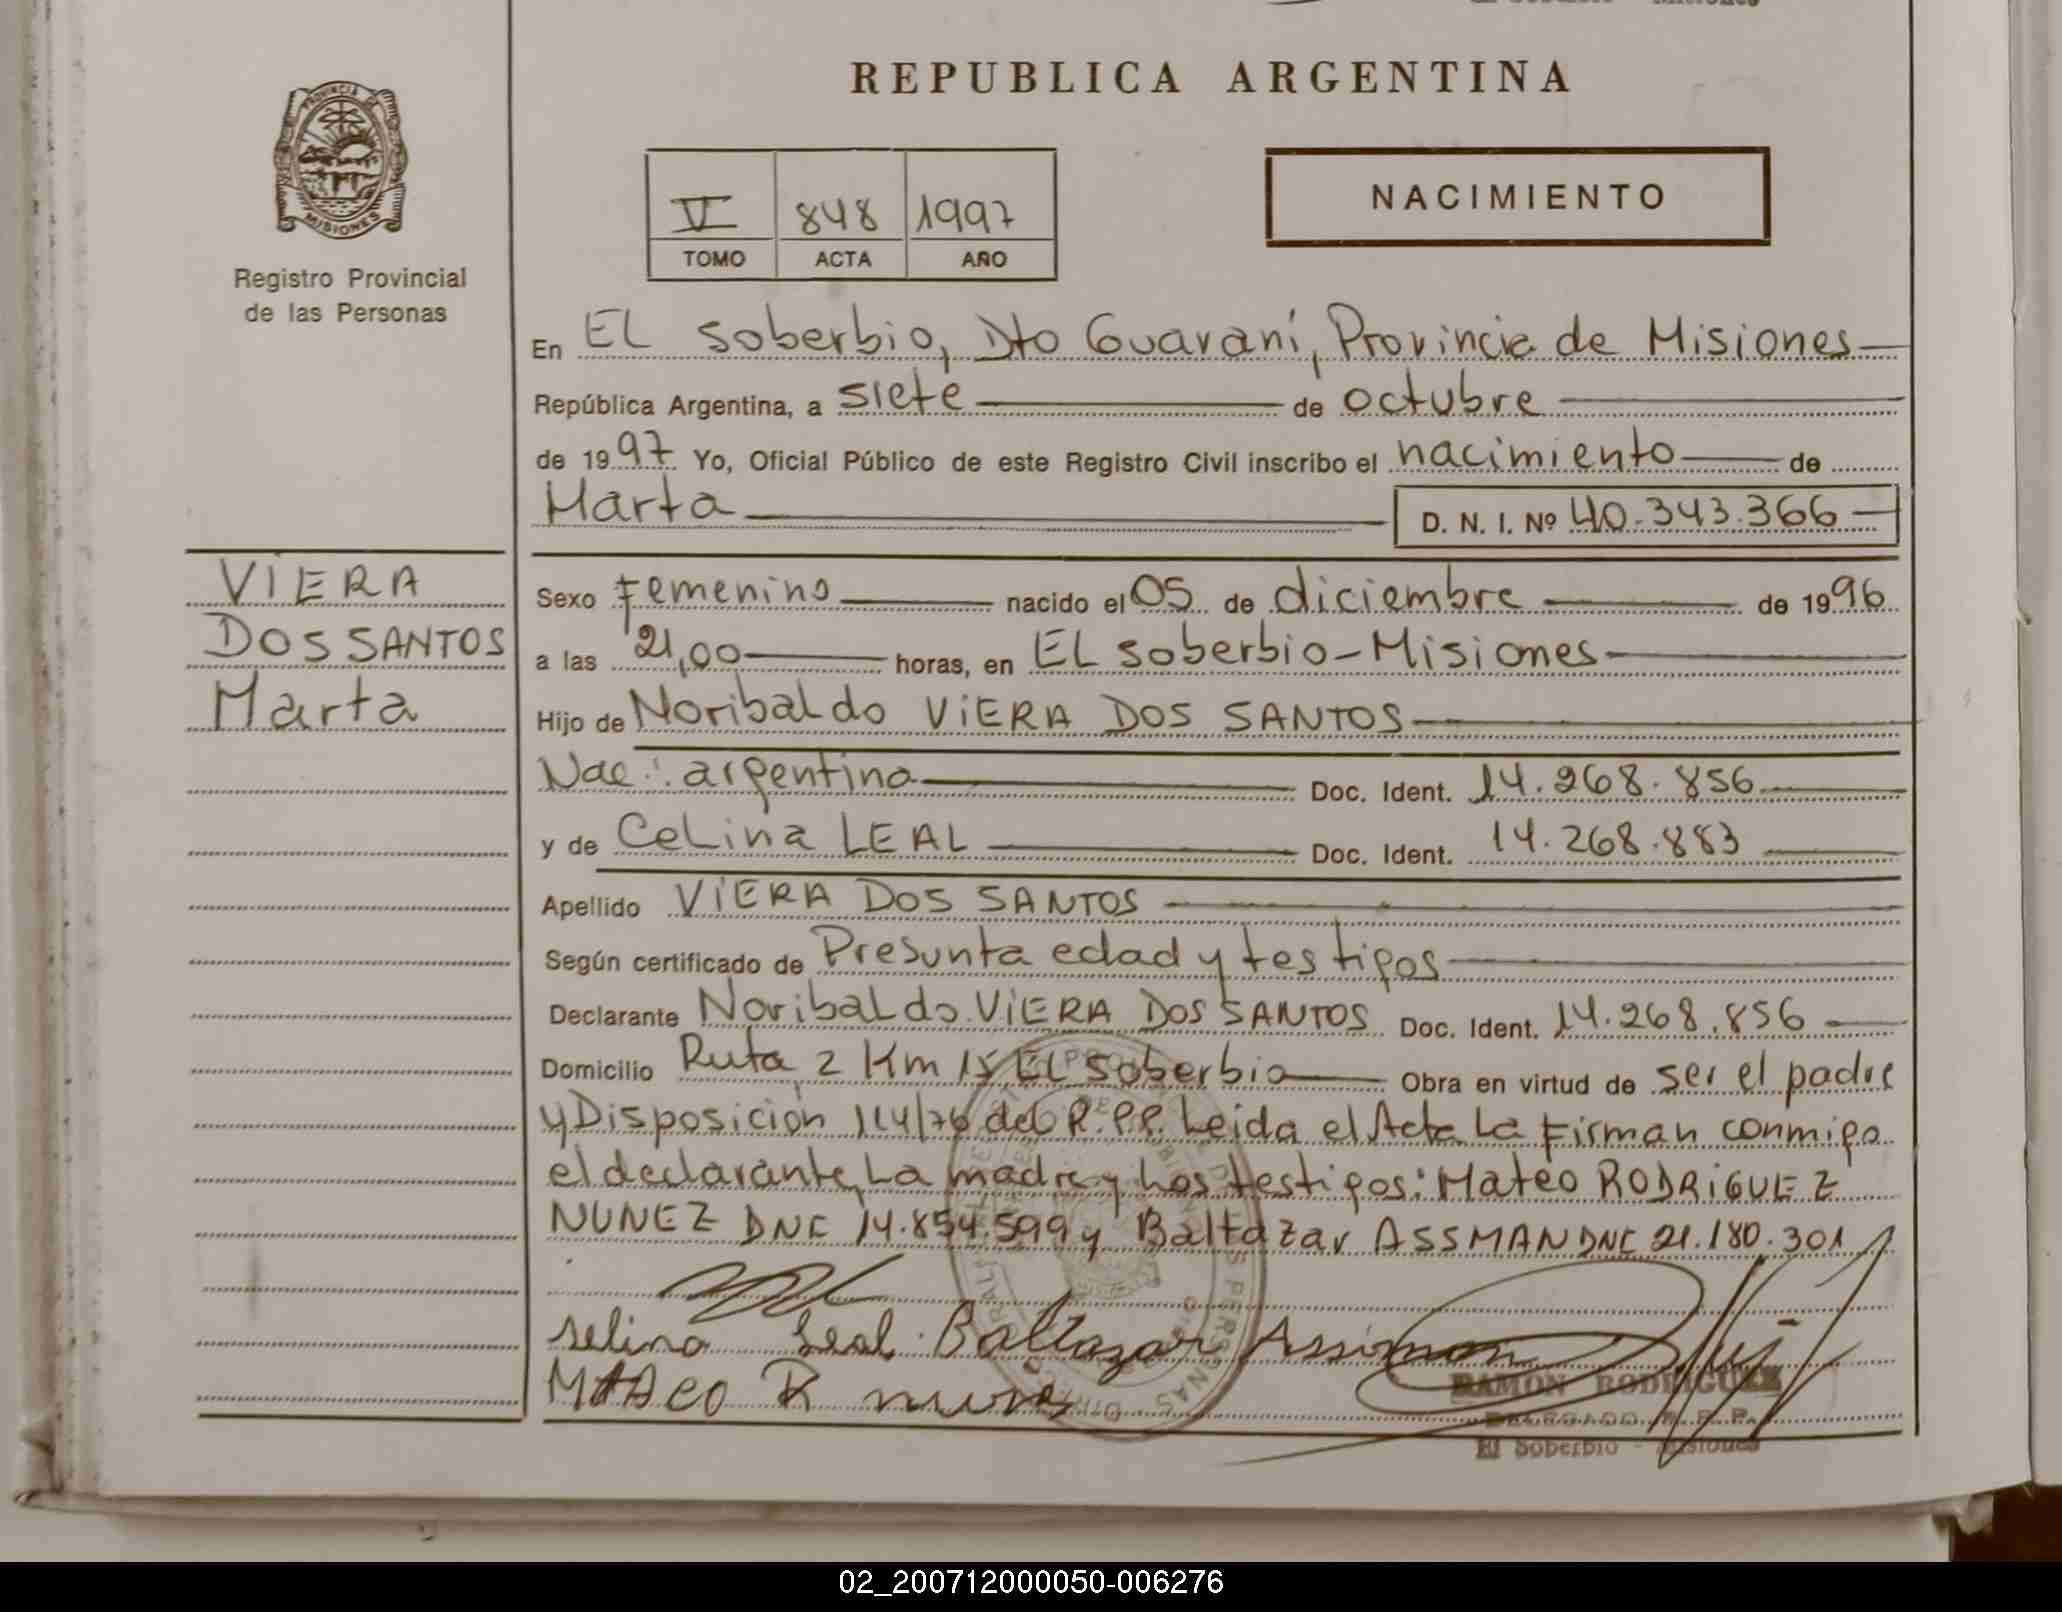 REPUBLICA ARGENTINA
PROVINCIA DE MISIONES
Registro Provincial
de las Personas
VI 848 1997
TOMO ACTA AÑO
NACIMIENTO
En EL Soberbio, Dto Guaraní, Provincia de Misiones
República Argentina, a siete de octubre
de 1997 Yo, Oficial Público de este Registro Civil inscribo el nacimiento de
Marta D. N. I. Nº 40.343.366
VIERA
DOS SANTOS
Marta
Sexo Femenino nacido el 05 de diciembre de 1996
a las 21,00 horas, en EL Soberbio-Misiones
Hijo de Noribaldo VIERA DOS SANTOS
Nac: argentina Doc. Ident. 14.268.856
y de Celina LEAL Doc. Ident. 14.268.883
Apellido VIERA DOS SANTOS
Según certificado de Presunta edad y testigos
Declarante Noribaldo VIERA DOS SANTOS Doc. Ident. 14.268.856
Domicilio Ruta 2 Km 15 EL Soberbio Obra en virtud de ser el padre
y Disposición 114/76 del R.P.P. Leida el Acta La Firman conmigo
el declarante, La madre y Los testigos: Mateo RODRIGUEZ
NUNEZ DNI 14.854.599 y Baltazar ASSMAN DNI 21.180.301
selina Leal Baltazar Assmon
MATeo R nunes
RAMON RODRIGUEZ
DELEGADO R. P. P.
El Soberbio - Misiones
02_200712000050-006276